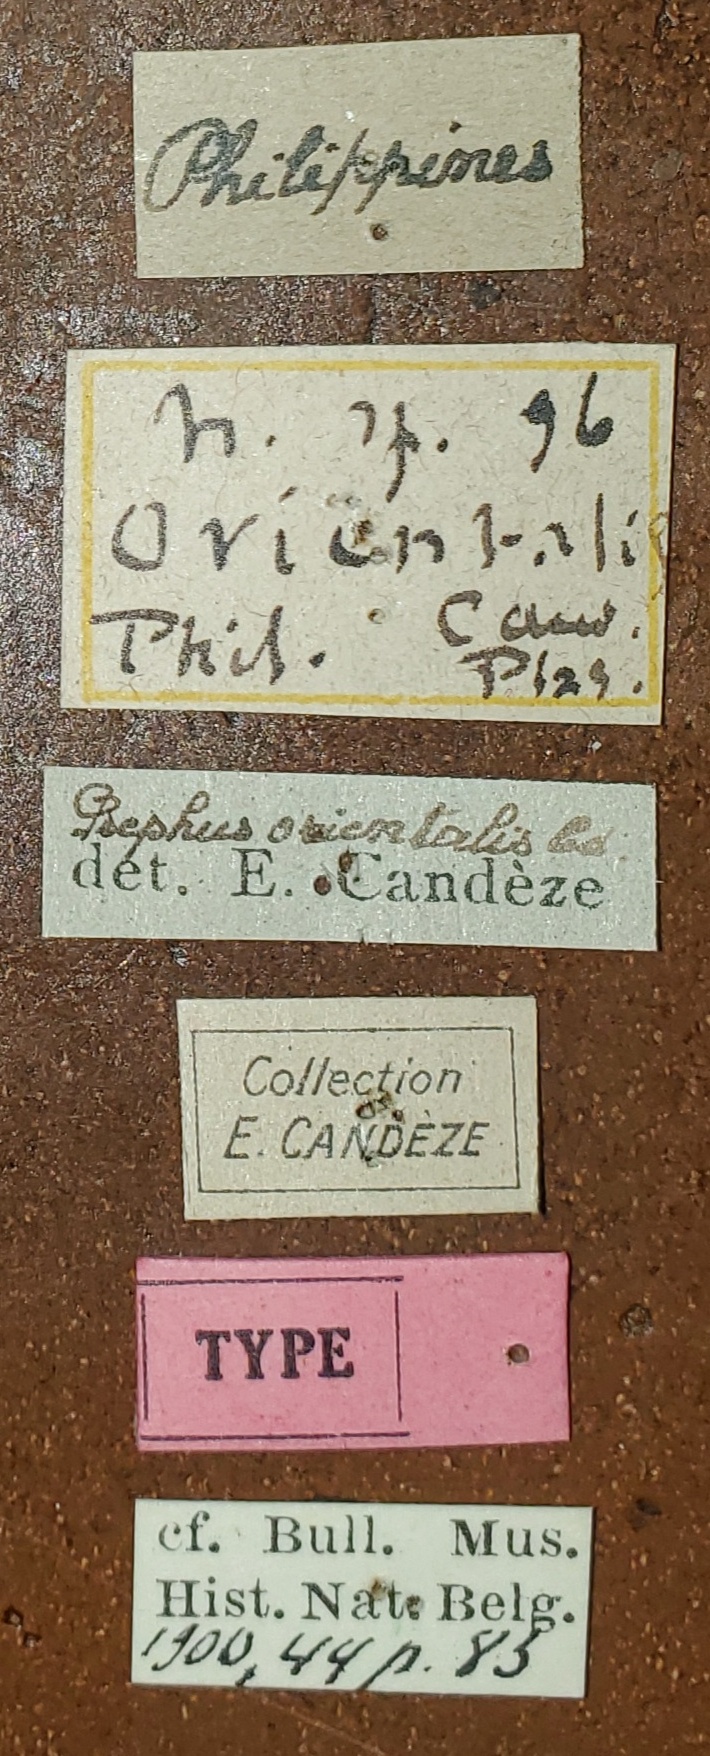 Philippines
n. sp. 96
Orientali
Phil. Cand.
Psephus orientalis Cd
dét. E. Candèze
Collection
E. CANDÈZE
TYPE
cf. Bull. Mus.
Hist. Nat. Belg.
1900, 44 p. 85